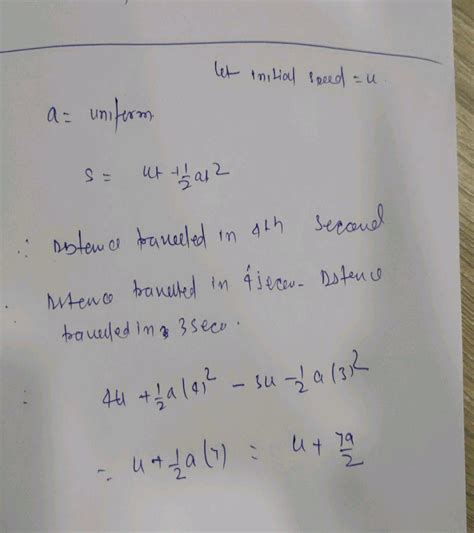 let initial speed = u
a = uniform
s = ut + 1/2 at^2
∴ Distence travelled in 4th second
Distence travelled in 4 secon - Distence
travelled in 3 seco.
4u + 1/2 a(4)^2 - 3u - 1/2 a(3)^2
= u + 1/2 a(7) = u + 7a/2